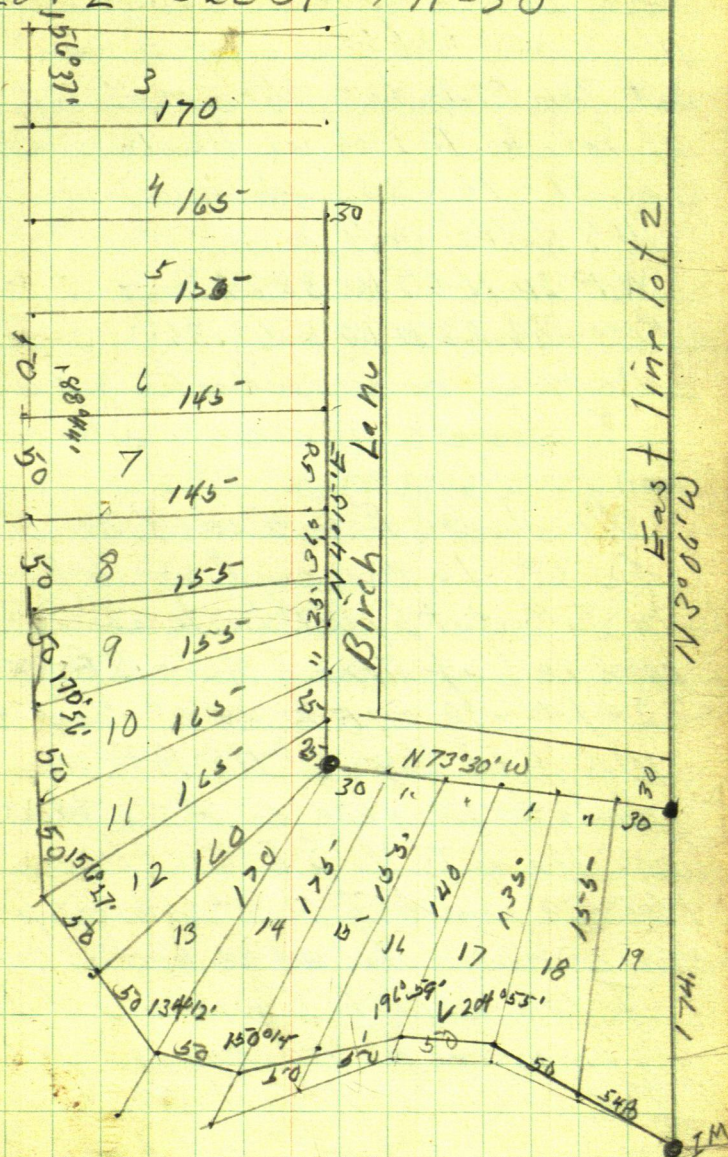 156°37'
3
170
4 165
30
5 155
6
145
88°44'
50
7
145
50
N4°15'E
Birch Lane
East line lot 2
N3°06'W
50
8
155
25
50
9 155
"
170°56'
10 165
25
50
11 165
25
N73°30'W
30
30
30
50
12 160
50
13
170
14
175
15
155
16
140
17
135
18
155
19
174.
50 134°12'
50
150°14'
50
50
196°59'
50
204°55'
50
54.8
IM